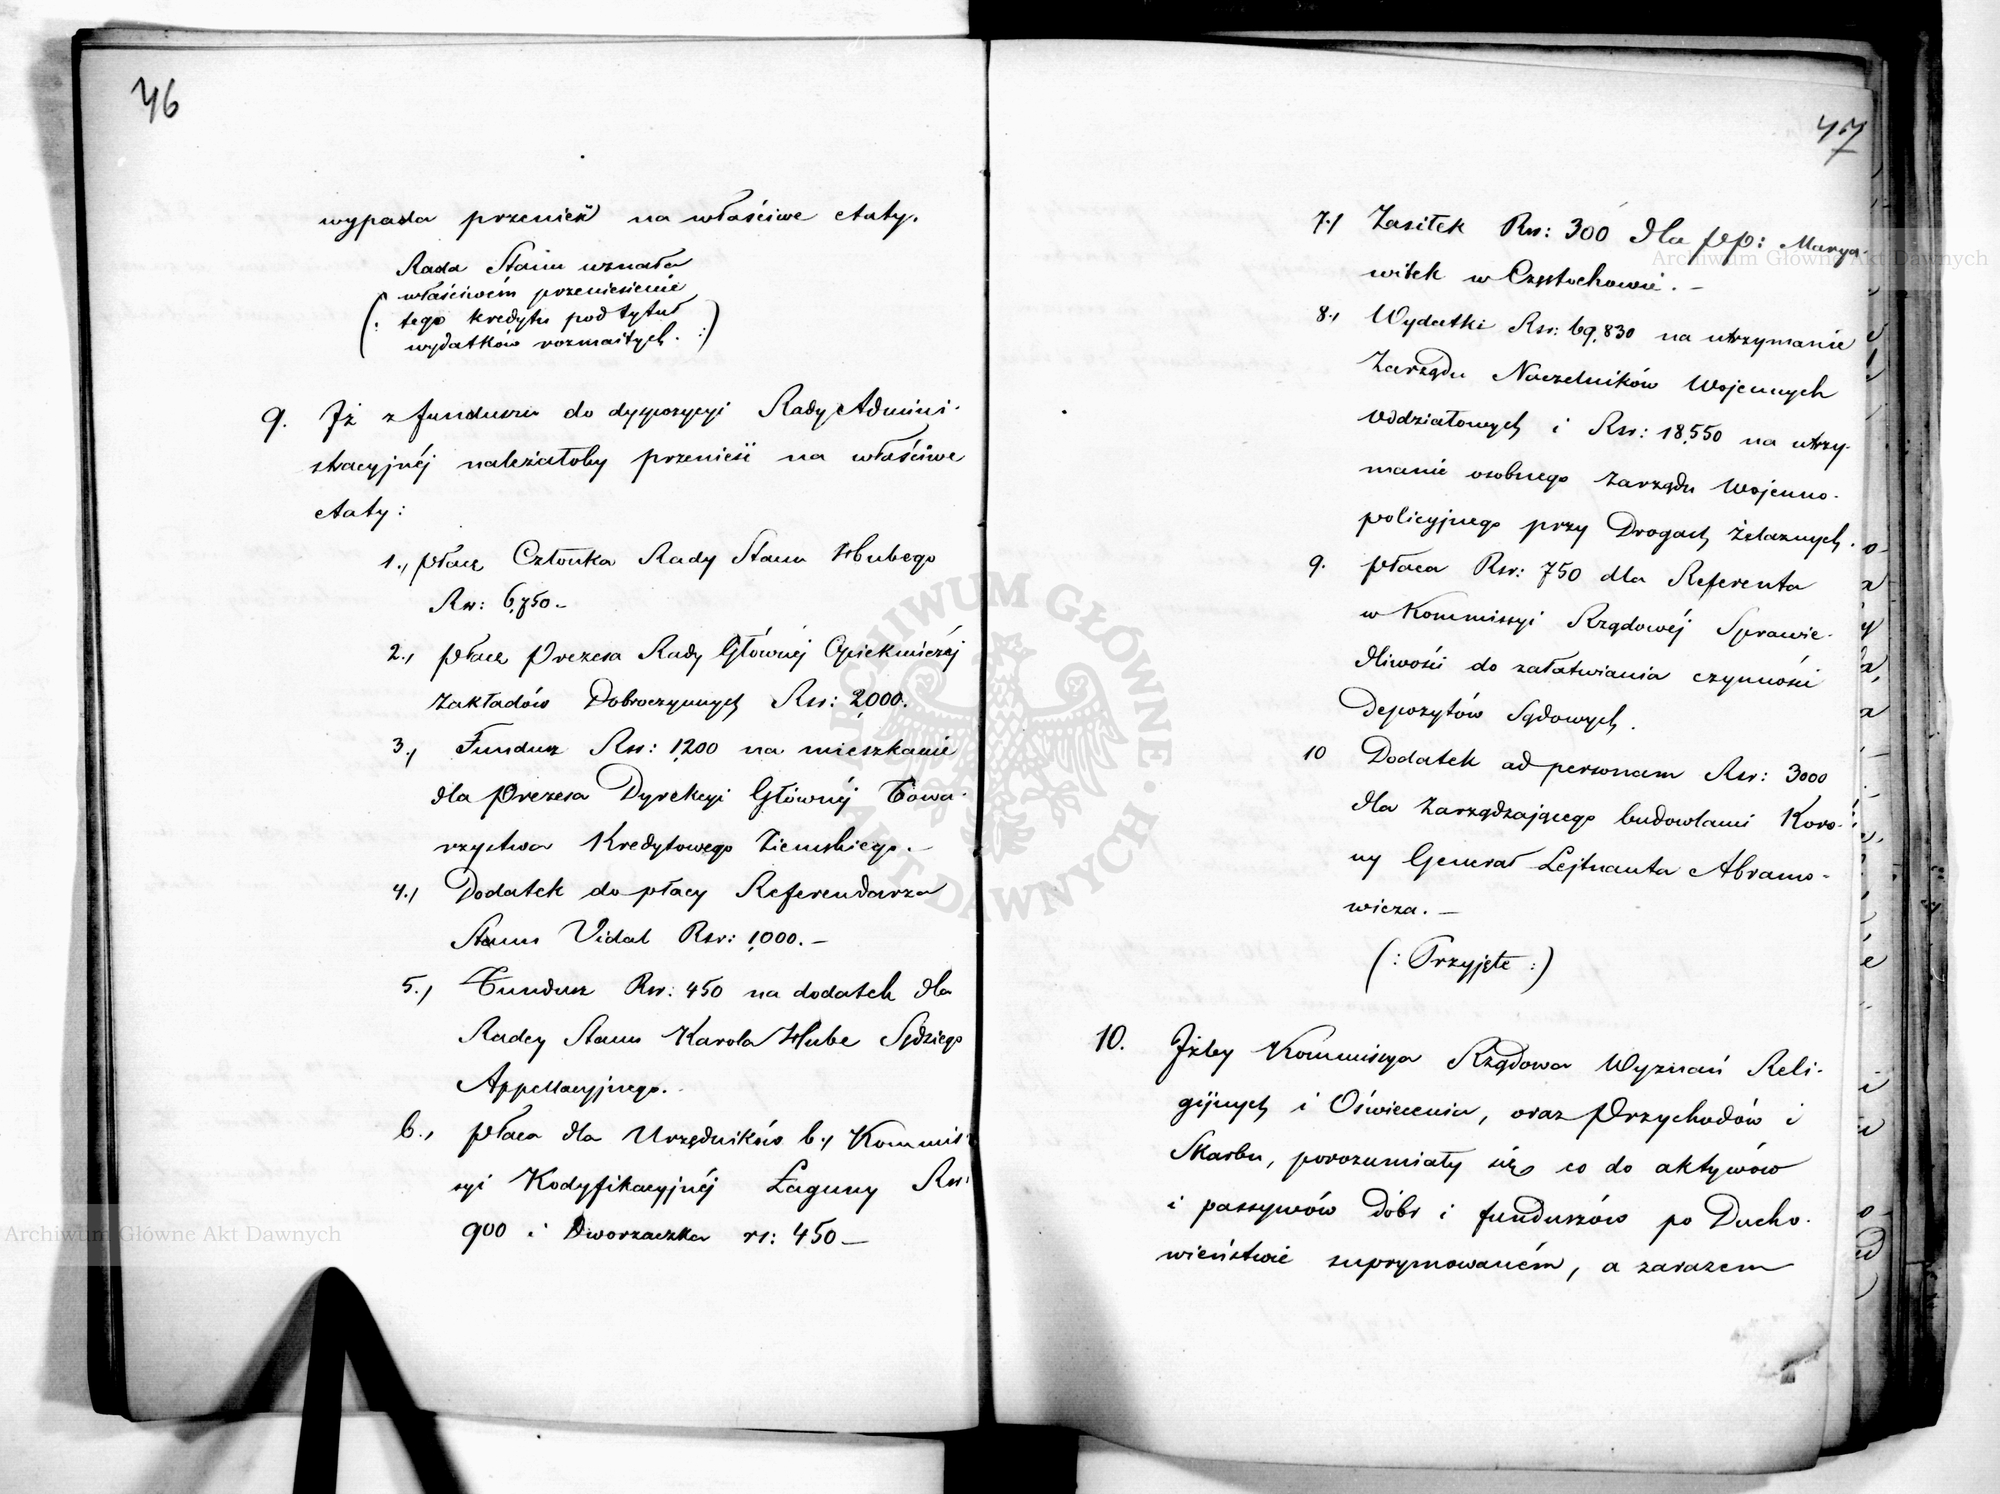 46
wypada przenieść na właściwe etaty.
Rada Stanu uznała
właściwém przeniesienie
(: tego kredytu pod tytuł
wydatków rozmaitych. :)
9. Iż z funduszu do dyspozycyi Rady Admini-
stracyjnéj należałoby przenieść na właściwe
etaty:
1., płacę Członka Rady Stanu Hubego
Rsr: 6,750.–
2., płacę Prezesa Rady Głównéj Opiekuńczéj
Zakładów Dobroczynnych Rsr: 2,000.
3., Fundusz Rsr: 1,200 na mieszkanie
dla Prezesa Dyrekcyi Głównéj Towa-
rzystwa Kredytowego Ziemskiego.–
4., Dodatek do płacy Referendarza
Stanu Vidal Rsr: 1,000.–
5., Fundusz Rsr: 450 na dodatek dla
Radcy Stanu Karola Hube Sędziego
Appellacyjnego.–
6., płaca dla Urzędników b., Kommis-
syi Kodyfikacyjnéj Łaguny Rsr:
900 i Dworzaczka rs: 450 –
47
7., Zasiłek Rsr: 300 dla pp: Marya-
witek w Częstochowie. –
8., Wydatki Rsr: 69,830 na utrzymanie
Zarządu Naczelników Wojennych
Oddziałowych i Rsr: 18,550 na utrzy-
manie osobnego Zarządu Wojenno-
policyjnego przy Drogach Żelaznych.
9. płaca Rsr: 750 dla Referenta
w Kommissyi Rządowéj Sprawie-
dliwości do załatwiania czynności
Depozytów Sądowych.
10 Dodatek ad personam Rsr: 3000
dla Zarządzającego budowlami Koro-
ny Generał Lejtnanta Abramo-
wicza. –
(: Przyjęte :)
10. Iżby Kommissya Rządowa Wyznań Reli-
gijnych i Oświecenia, oraz Przychodów i
Skarbu, porozumiały się co do aktywów
i passywów dóbr i funduszów po Ducho-
wieństwie suprymowaném, a zarazem
ARCHIWUM GŁÓWNE AKT DAWNYCH
Archiwum Główne Akt Dawnych
Archiwum Główne Akt Dawnych